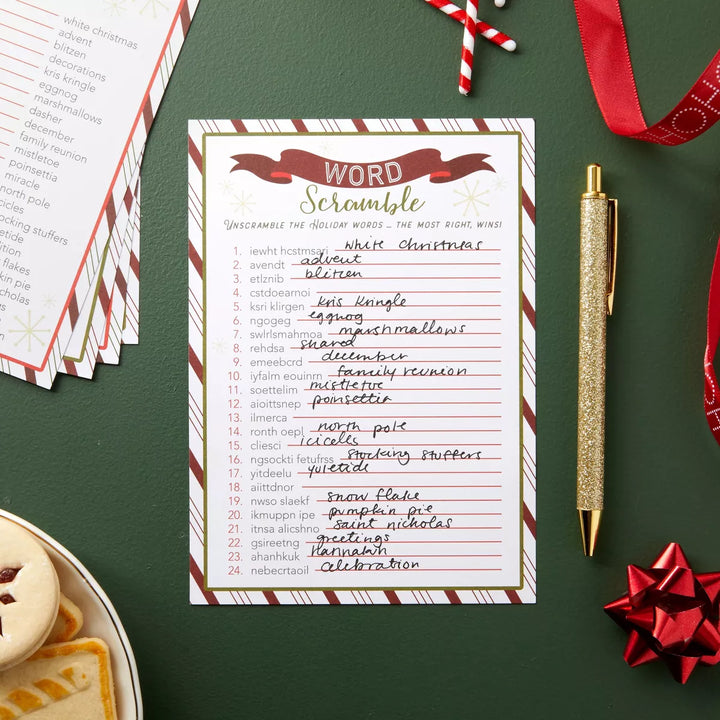 white christmas
advent
blitzen
decorations
kris kringle
eggnog
marshmallows
dasher
december
family reunion
mistletoe
poinsettia
miracle
north pole
icicles
stockings stuffers
flakes
pie
WORD
Scramble
UNSCRAMBLE THE HOLIDAY WORDS ... THE MOST RIGHT, WINS!
1. iewht hcstmsari white christmas
2. avendt advent
3. etlznib blitzen
4. cstdoearnoi
5. ksri klirgen kris kringle
6. ngogeg eggnog
7. swlrlsmahmoa marshmallows
8. rehdsa shared
9. emeebcrd december
10. iyfalm eouinrn family reunion
11. soettelim mistletoe
12. aioittsnep poinsettia
13. ilmerca
14. ronth oepl north pole
15. cliesci icicles
16. ngsockti fetufrss stocking stuffers
17. yitdeelu yuletide
18. aiittdnor
19. nwso slaekf snow flake
20. ikmuppn ipe pumpkin pie
21. itnsa alicshno saint nicholas
22. gsireetng greetings
23. ahanhkuk
24. nebecrtaoil celebration
HOHO